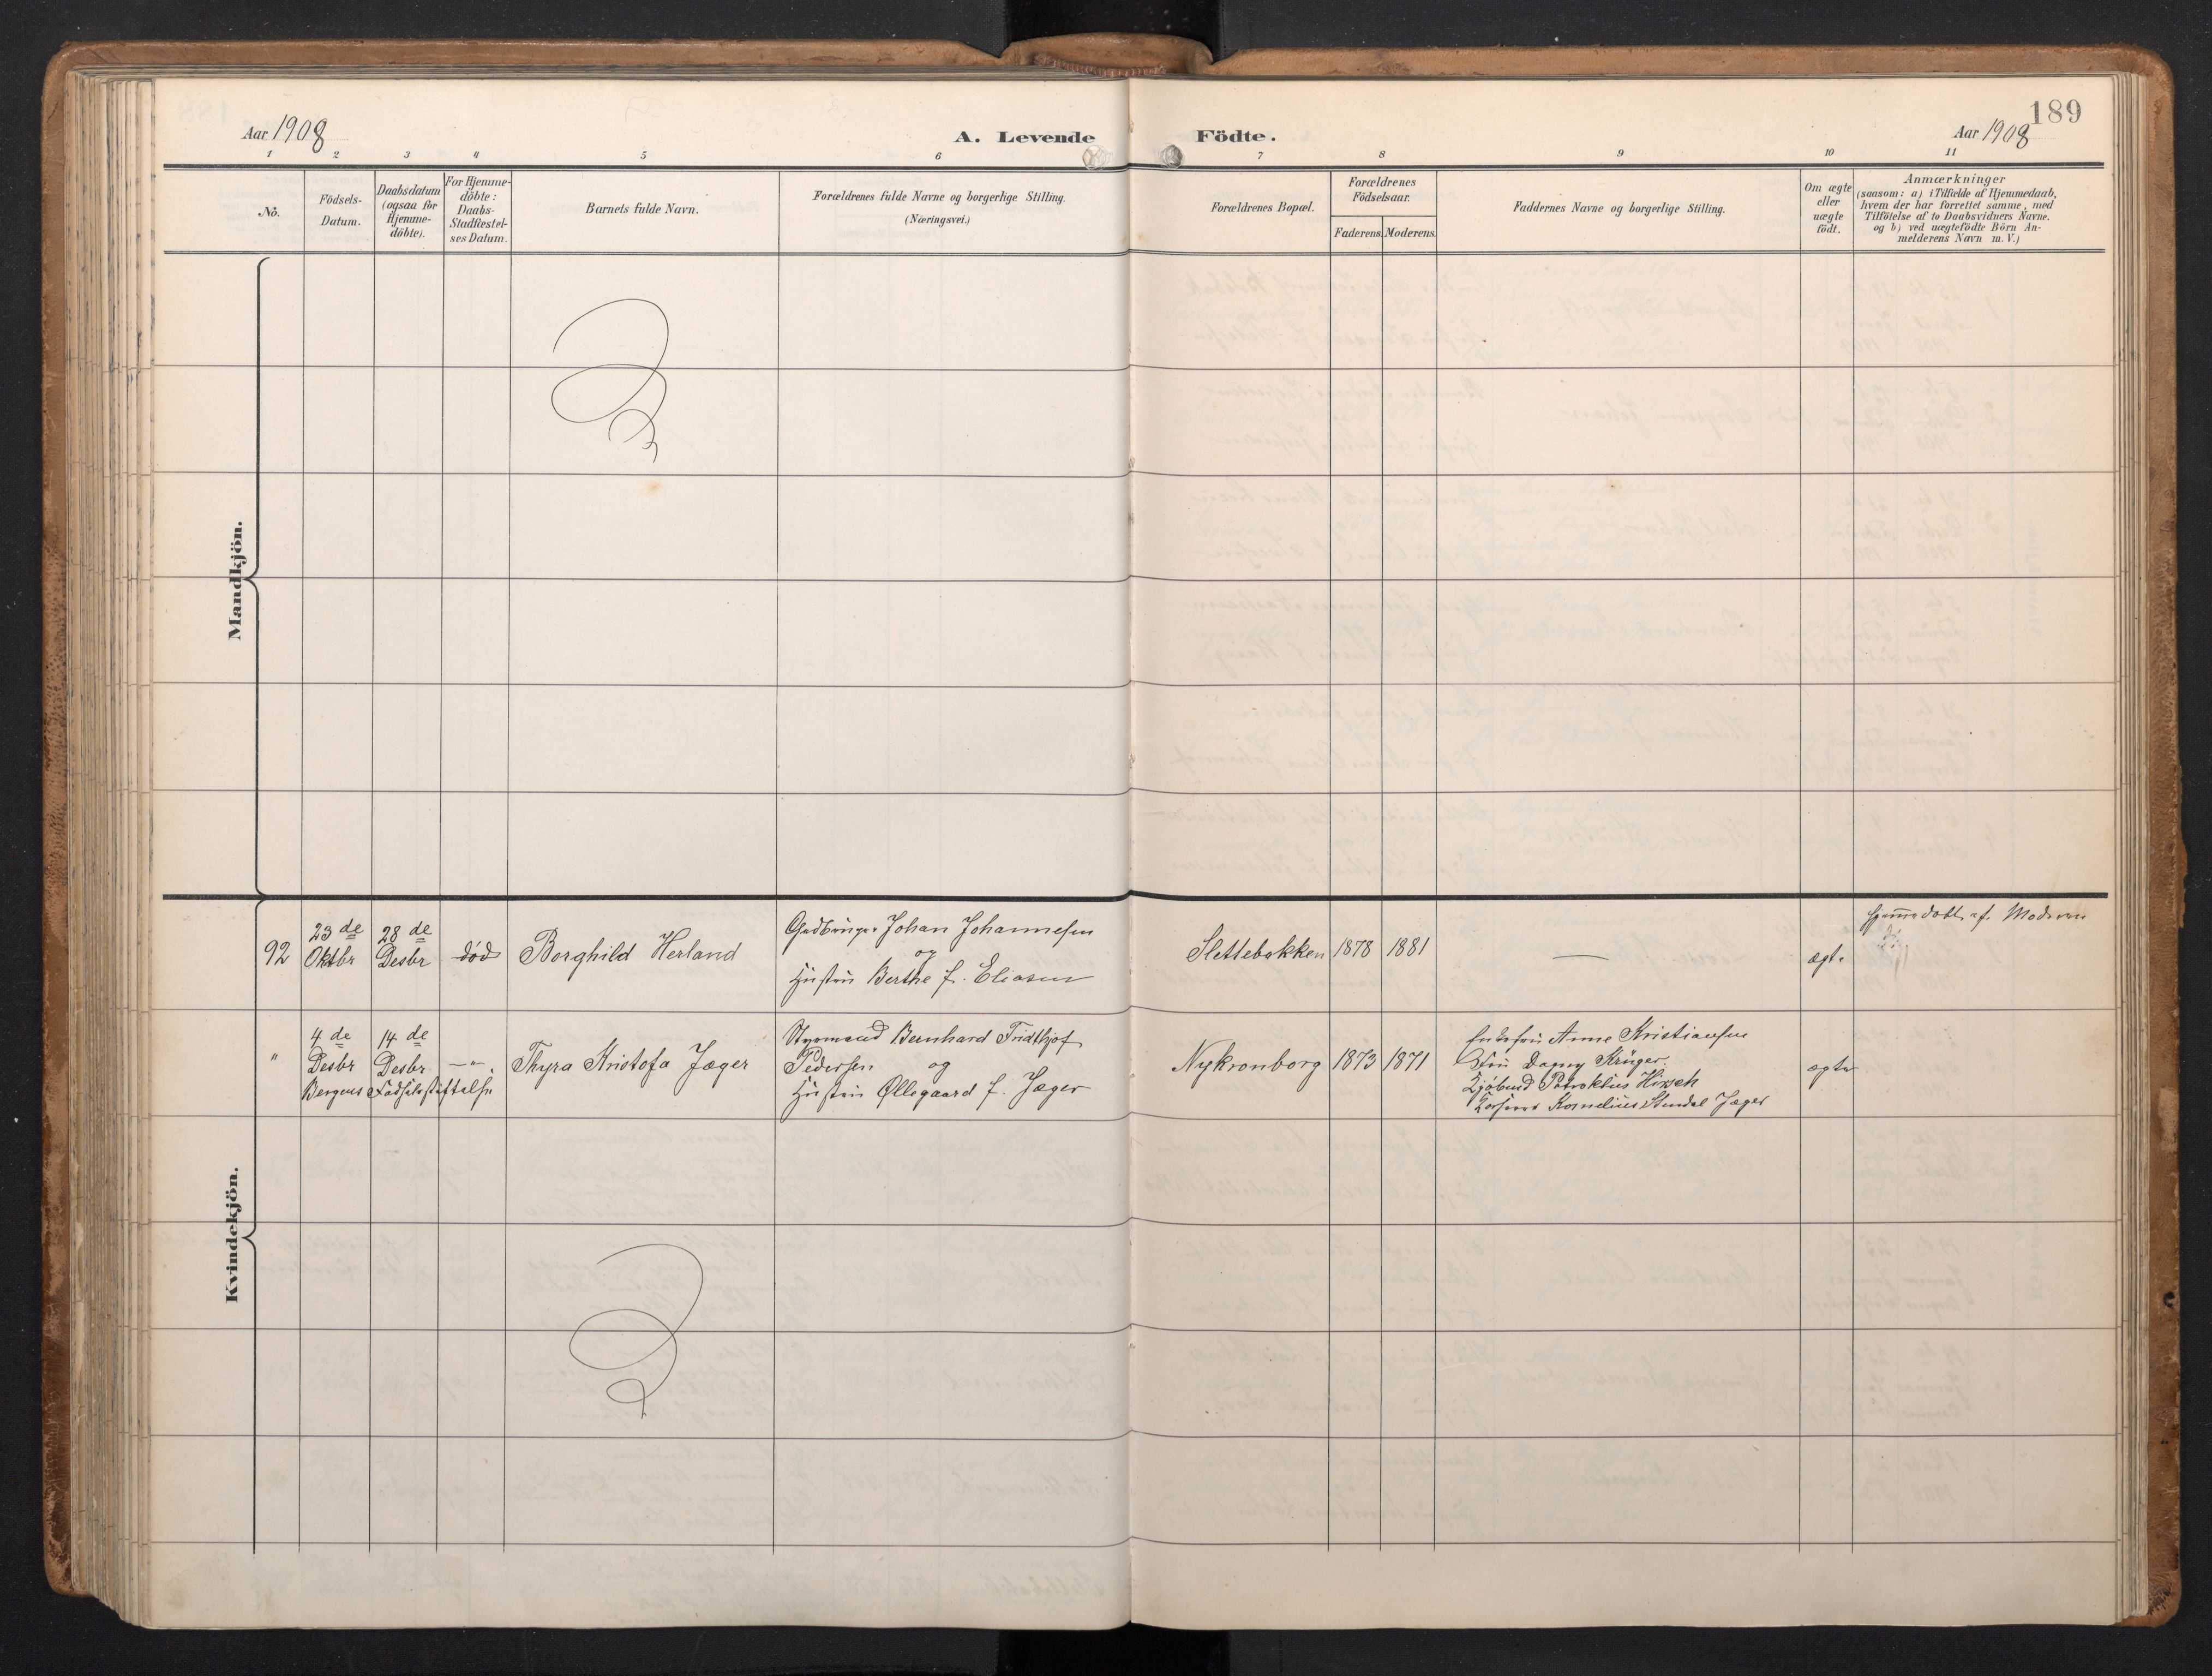 189
Aar 1908
A. Levende Födte.
Aar 1908
1 2 3 4 5 6 7 8 9 10 11
No.
Födsels-
Datum.
Daabsdatum
(ogsaa for
Hjemme-
döbte).
For Hjemme-
döbte:
Daabs-
Stadfæstel-
ses Datum.
Barnets fulde Navn.
Forældrenes fulde Navne og borgerlige Stilling.
(Næringsvei.)
Forældrenes Bopæl.
Forældrenes
Födselsaar.
Faderens. Moderens.
Faddernes Navne og borgerlige Stilling.
Om ægte
eller
uægte
födt.
Anmærkninger
(saasom: a) i Tilfælde af Hjemmedaab,
hvem der har forrettet samme, med
Tilföielse af to Daabsvidners Navne.
og b) ved uægtefödte Börn An-
melderens Navn m. V.)
Mandkjön.
Kvindekjön.
92
23 de
Oktbr
28 de
Desbr
död
Borghild Herland
Gadbruger Johan Johannesen
og
Hustru Berthe f. Eliasen
Slettebakken
1878
1881
—
ægte
Hjemmedøbt af Moderen
"
4 de
Desbr
14 de
Desbr
—"—
Bergens Fødselsstiftelse
Thyra Kristofa Jæger
Styrmand Bernhard Fridthjof
Pedersen og
Hustru Øllegaard f. Jæger
Nykronborg
1873
1871
Enkefru Anne Kristiansen
Dagny Krüger
Patroklus Hirsch
Kornelius Stendal Jæger
ægte